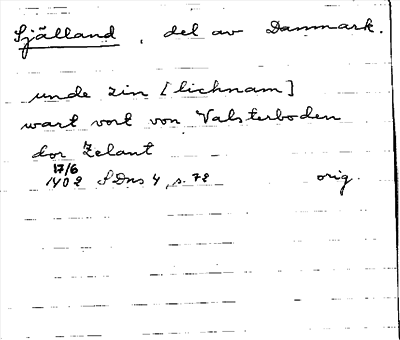 Själland, del av Danmark.
unde zin [lichnam]
wart vort von Valsterboden
dor Zelant
17/6
1402 SDns 4, s. 72 orig.